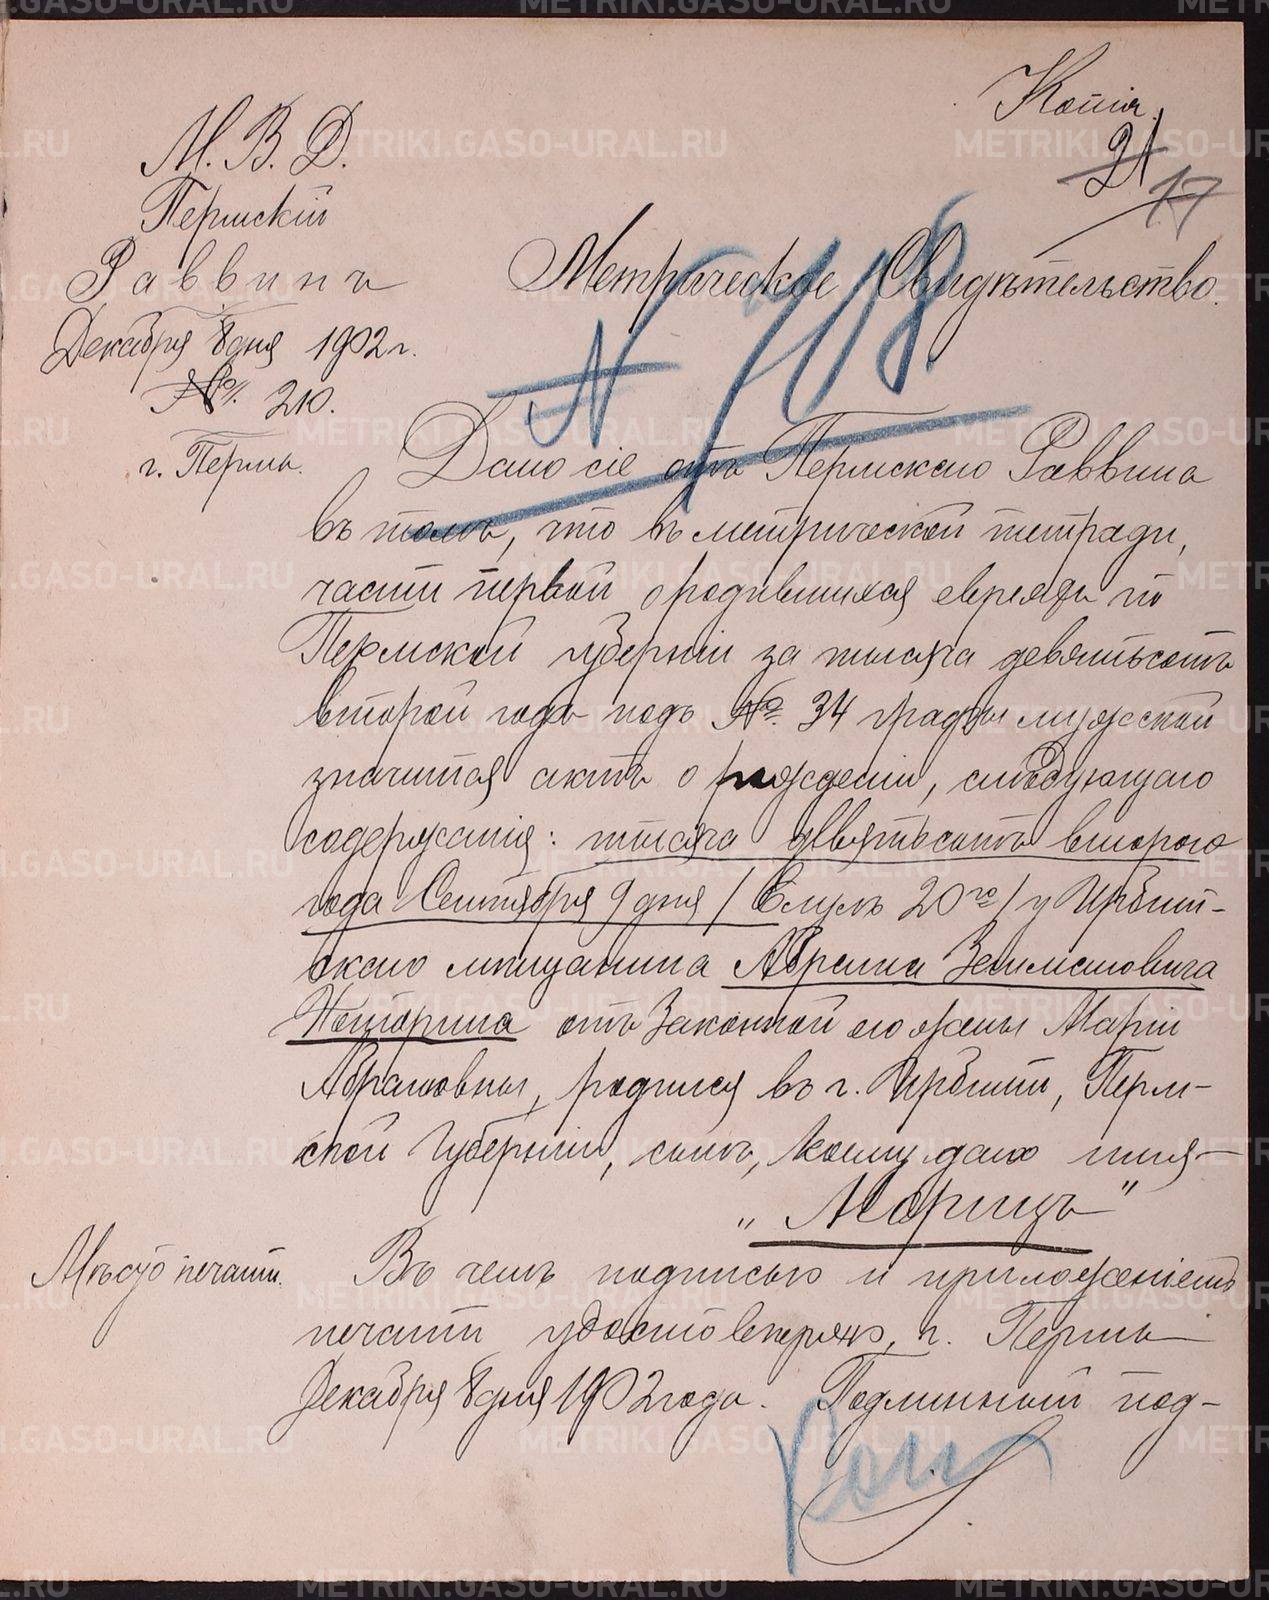 Копія.
21
17
М. В. Д.
Пермскій
Раввинъ
Декабря 8 дня 1902 г.
№ 210.
г. Пермь.
Метрическое Свидѣтельство.
N 418
Дано сіе отъ Пермскаго Раввина
въ томъ, что въ метрической тетради,
части первой о родившихся евреяхъ по
Пермской губерніи за тысяча девятьсотъ
второй годъ подъ №. 34 графы мужской
значится актъ о рожденіи, слѣдующаго
содержанія: тысяча девятьсотъ второго
года Сентября 9 дня / Елулъ 20го / у Ирбит-
скаго мѣщанина Абрама
отъ законной его жены Маріи
Абрамовны, родился въ г. Ирбити, Перм-
ской Губерніи, сынъ, коему дано имя
„Морицъ"
Мѣсто печати.
Въ чемъ подписью и приложеніемъ
печати удостовѣряю, г. Пермь
Декабря 8 дня 1902 года. Подлинный под-